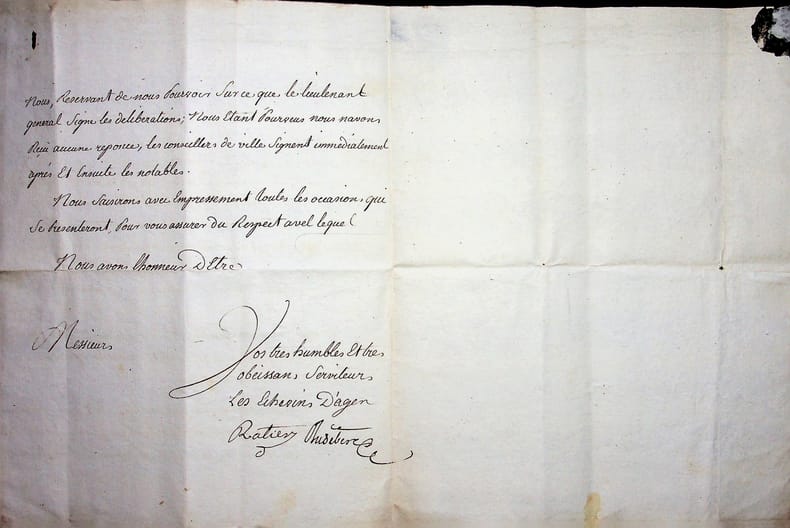 Nous, Reservant de nous Pourvoir Sur ce que le lieutenant
general Signe les deliberations; Nous Etant Pourveus nous navons
Reçu aucune reponce, les conseillers de ville Signent immédiatement
après Et Ensuite les notables.
Nous Saisirons avec Empressement toutes les occasions, qui
Se Presenteront, Pour vous assurer du Respect avel lequel
Nous avons lhonneur D'Etre
Messieurs
Vos tres humbles Et tres
obeissans Serviteurs
Les Echevins D'agen
Ratier